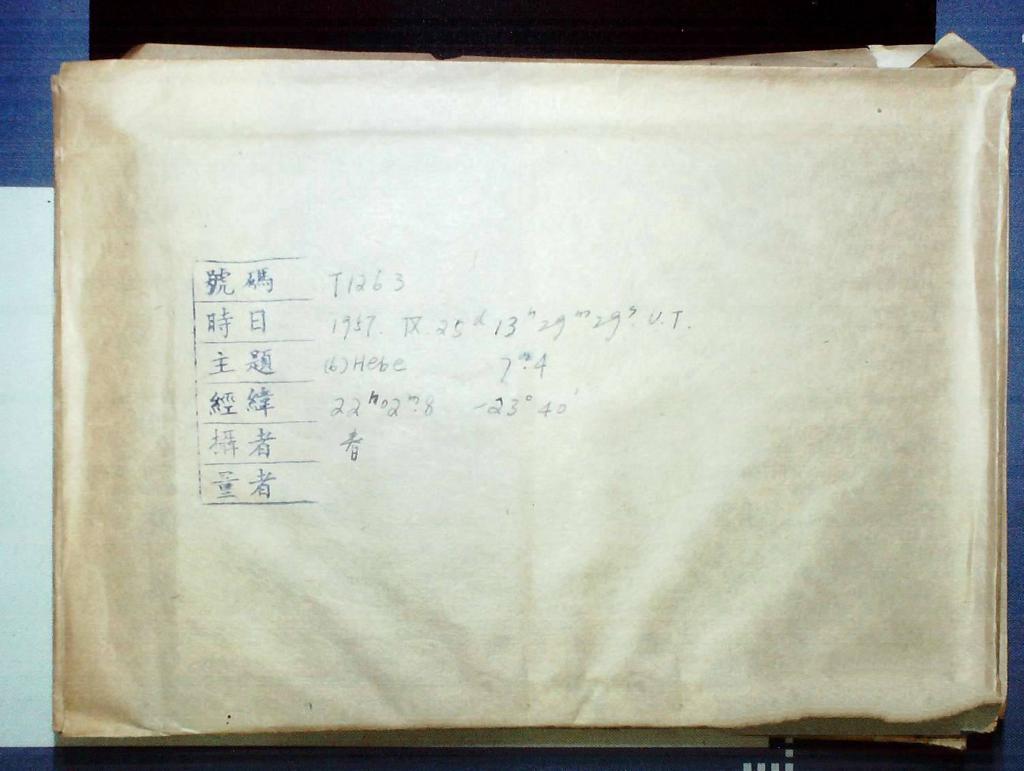 號碼 T1263
時日 1957. IX. 25ᵈ 13ʰ 29ᵐ 29ˢ. U.T.
主題 (6) Hebe 7ᵐ.4
經緯 22ʰ02ᵐ.8 -23° 40'
攝者 春
量者